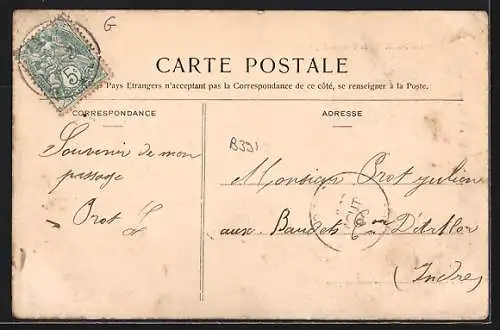 G
5
CARTE POSTALE
Pays Etrangers n'acceptant pas la Correspondance de ce côté, se renseigner à la Poste.
CORRESPONDANCE
Souvenir de mon
passage
Prot L
ADRESSE
B391
Monsieur Prot julien
aux Baudets
(Indre)